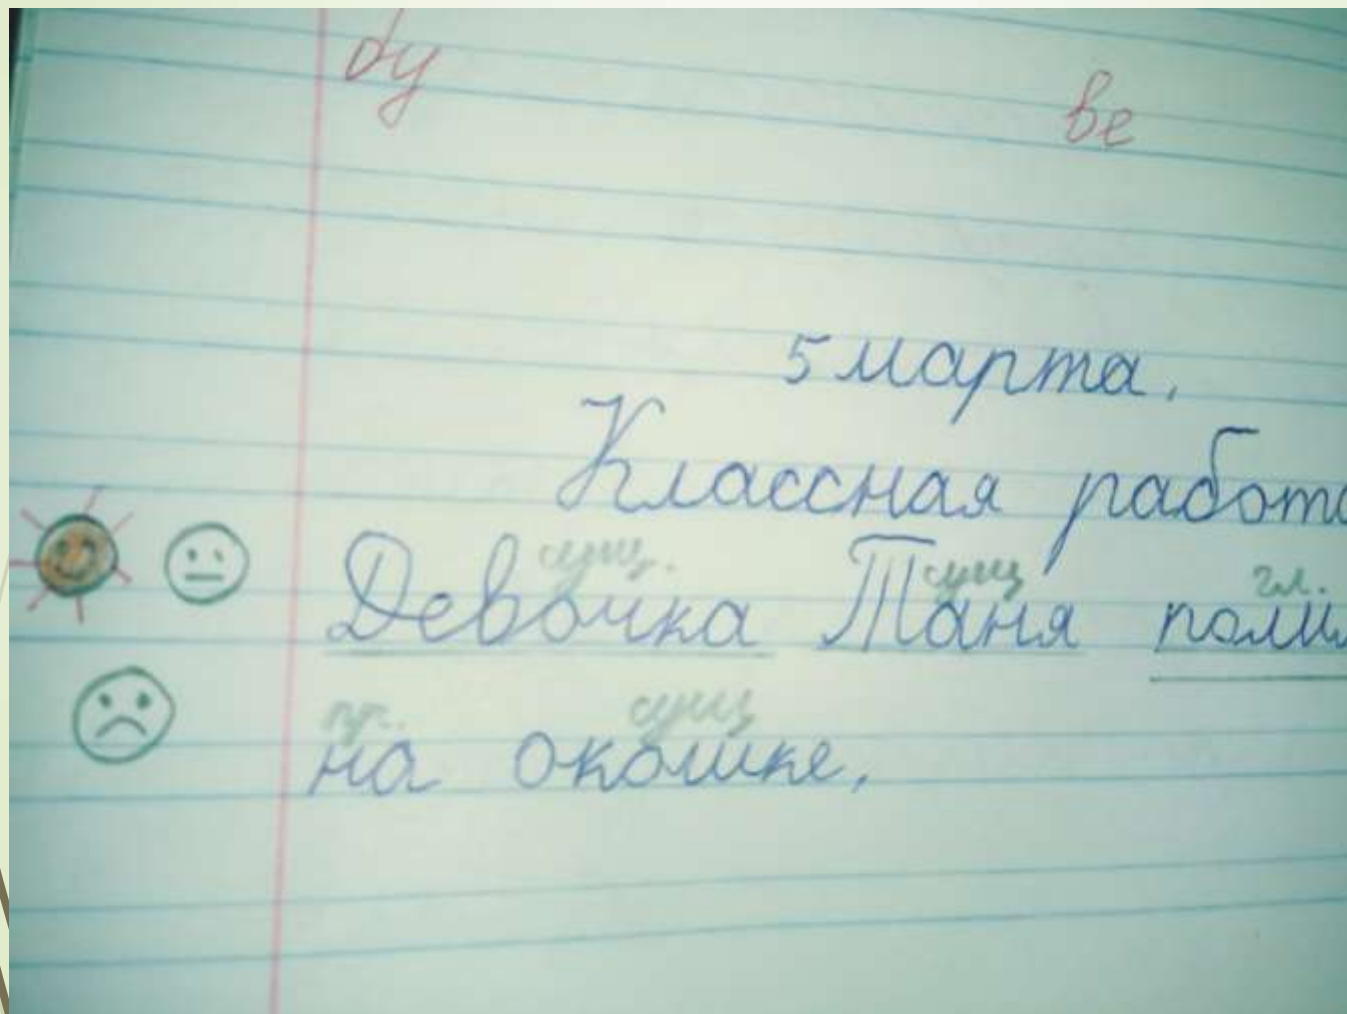 ве
5 марта.
Классная работа
сущ. сущ гл.
Девочка Таня
пр. сущ
на окошке.